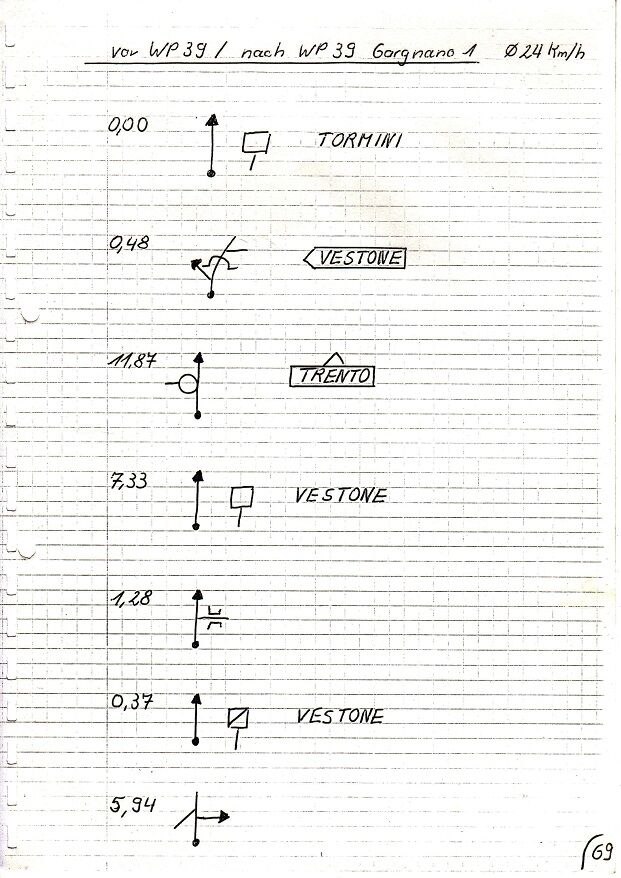 vor WP 39 / nach WP 39 Gargnano 1 Ø 24 Km/h
0,00 TORMINI
0,48 VESTONE
11,87 TRENTO
7,33 VESTONE
1,28
0,37 VESTONE
5,94
69